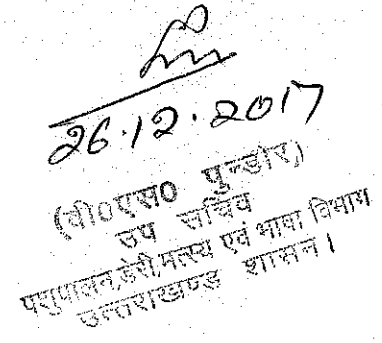 26.12.2017
(वी०एस० पुन्डीर)
उप सचिव
पशुपालन,डेरी,मत्स्य एवं भाषा विभाग
उत्तराखण्ड शासन।